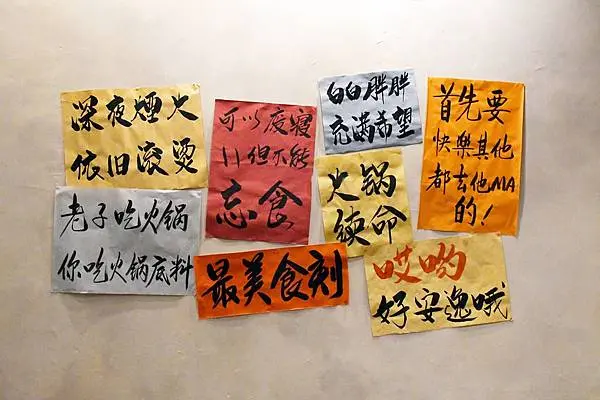 深夜煙火
依旧滚烫
老子吃火锅
你吃火锅底料
可以废寝
但不能
忘食
最美食刻
白白胖胖
充满希望
火锅
续命
哎哟
好安逸哦
首先要
快樂其他
都去他MA
的!